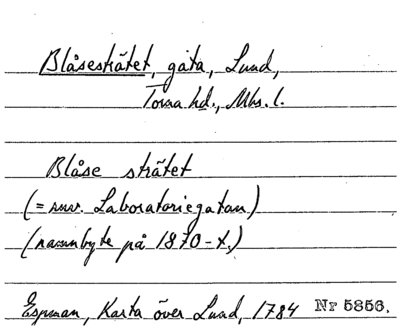 Blåsestråtet, gata, Lund,
Torna hd., Mlms. l.
Blåse stråtet
(= nuv. Laboratoriegatan)
(namnbyte på 1870-t.)
Espman, Karta över Lund, 1784 Nr 5856.